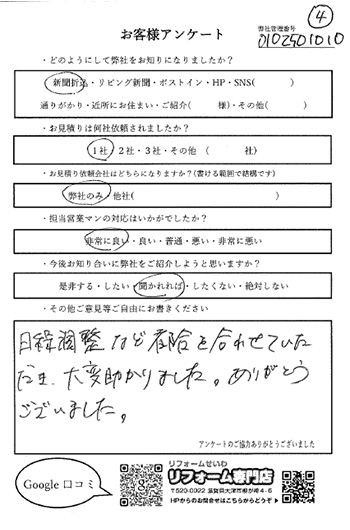 ④
お客様アンケート
弊社管理番号
0102501010
・どのようにして弊社をお知りになりましたか？
新聞折込・リビング新聞・ポストイン・HP・SNS( )
通りがかり・近所にお住まい・ご紹介( 様)・その他( )
・お見積りは何社依頼されましたか？
1社・2社・3社・その他 ( 社)
・お見積り依頼会社はどちらになりますか？(書ける範囲で結構です)
弊社のみ・他社( )
・担当営業マンの対応はいかがでしたか？
非常に良い・良い・普通・悪い・非常に悪い
・今後お知り合いに弊社をご紹介しようと思いますか？
是非する・したい・聞かれれば・したくない・絶対しない
・その他ご意見等ご自由にお書きください
日程調整など都合を合わせていた
だき、大変助かりました。ありがとう
ございました。
アンケートのご協力ありがとうございました
Google 口コミ
リフォームせいわ
リフォーム専門店
〒520-0922 滋賀県大津市柳が崎4-6
HPからのお問合せはこちらからどうぞ